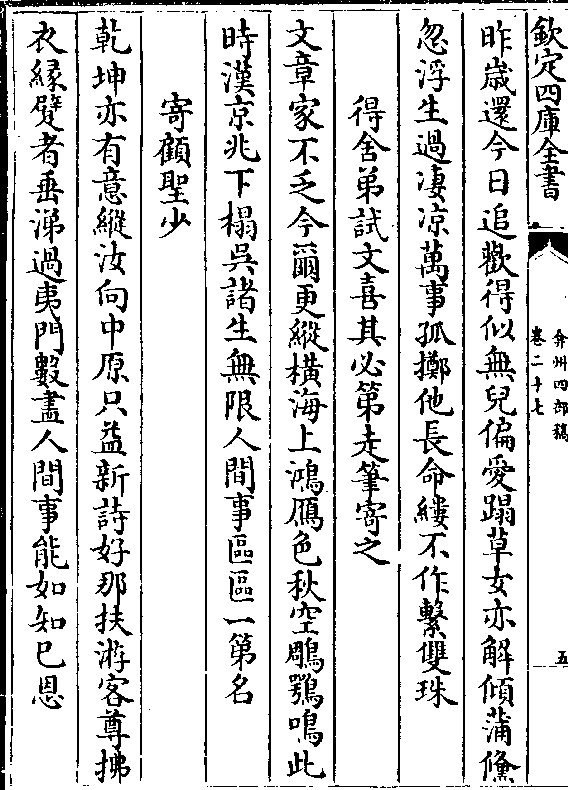 欽定四庫全書
弇州四部稿
卷二十七
五
昨歲還今日追歡得似無兒偏愛蹋草女亦解傾蒲儵
忽浮生過凄凉萬事孤擲他長命縷不作繫雙珠
得舍弟試文喜其必第走筆寄之
文章家不乏今爾更縱橫海上鴻鴈色秋空鵰鶚鳴此
時漢京兆下榻吳諸生無限人間事區區一第名
寄顧聖少
乾坤亦有意縱汝向中原只益新詩好那扶游客尊拂
衣緱甓者垂涕過夷門數盡人間事能如知已恩